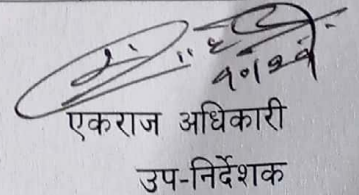 एकराज अधिकारी
उप-निर्देशक